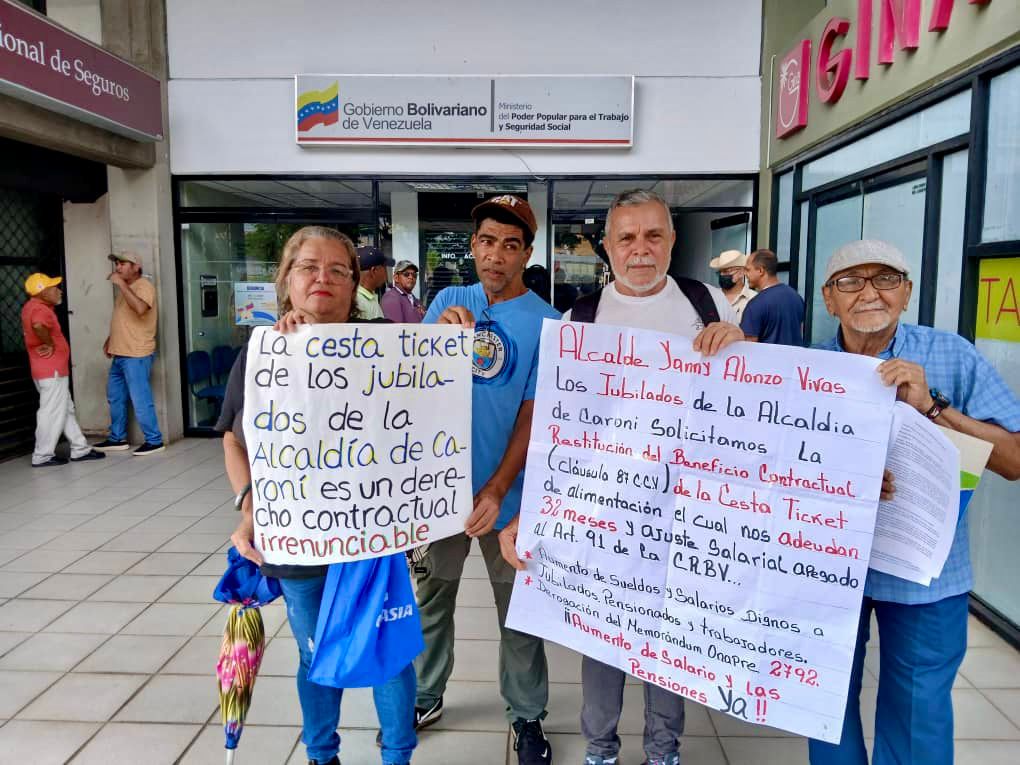 ional de Seguros
Gobierno Bolivariano
de Venezuela
Ministerio
del Poder Popular para el Trabajo
y Seguridad Social
GINA
La cesta ticket
de los jubila-
dos de la
Alcaldía de Ca-
roní es un dere-
cho contractual
irrenunciable
Alcalde Yanny Alonzo Vivas
Los Jubilados de La Alcaldia
de Caroni Solicitamos La
Restitución del Beneficio Contractual
(cláusula 87 C.C.V) de la Cesta Ticket
de alimentación el cual nos adeudan
32 meses y ajuste Salarial apegado
al Art. 91 de la C.R.B.V...
* Aumento de Sueldos y Salarios Dignos a
Jubilados, Pensionados y trabajadores.
* Derogación del Memorándum Onapre 2792.
¡¡Aumento de Salario y las
Pensiones Ya!!
ASIA
TA
INFO